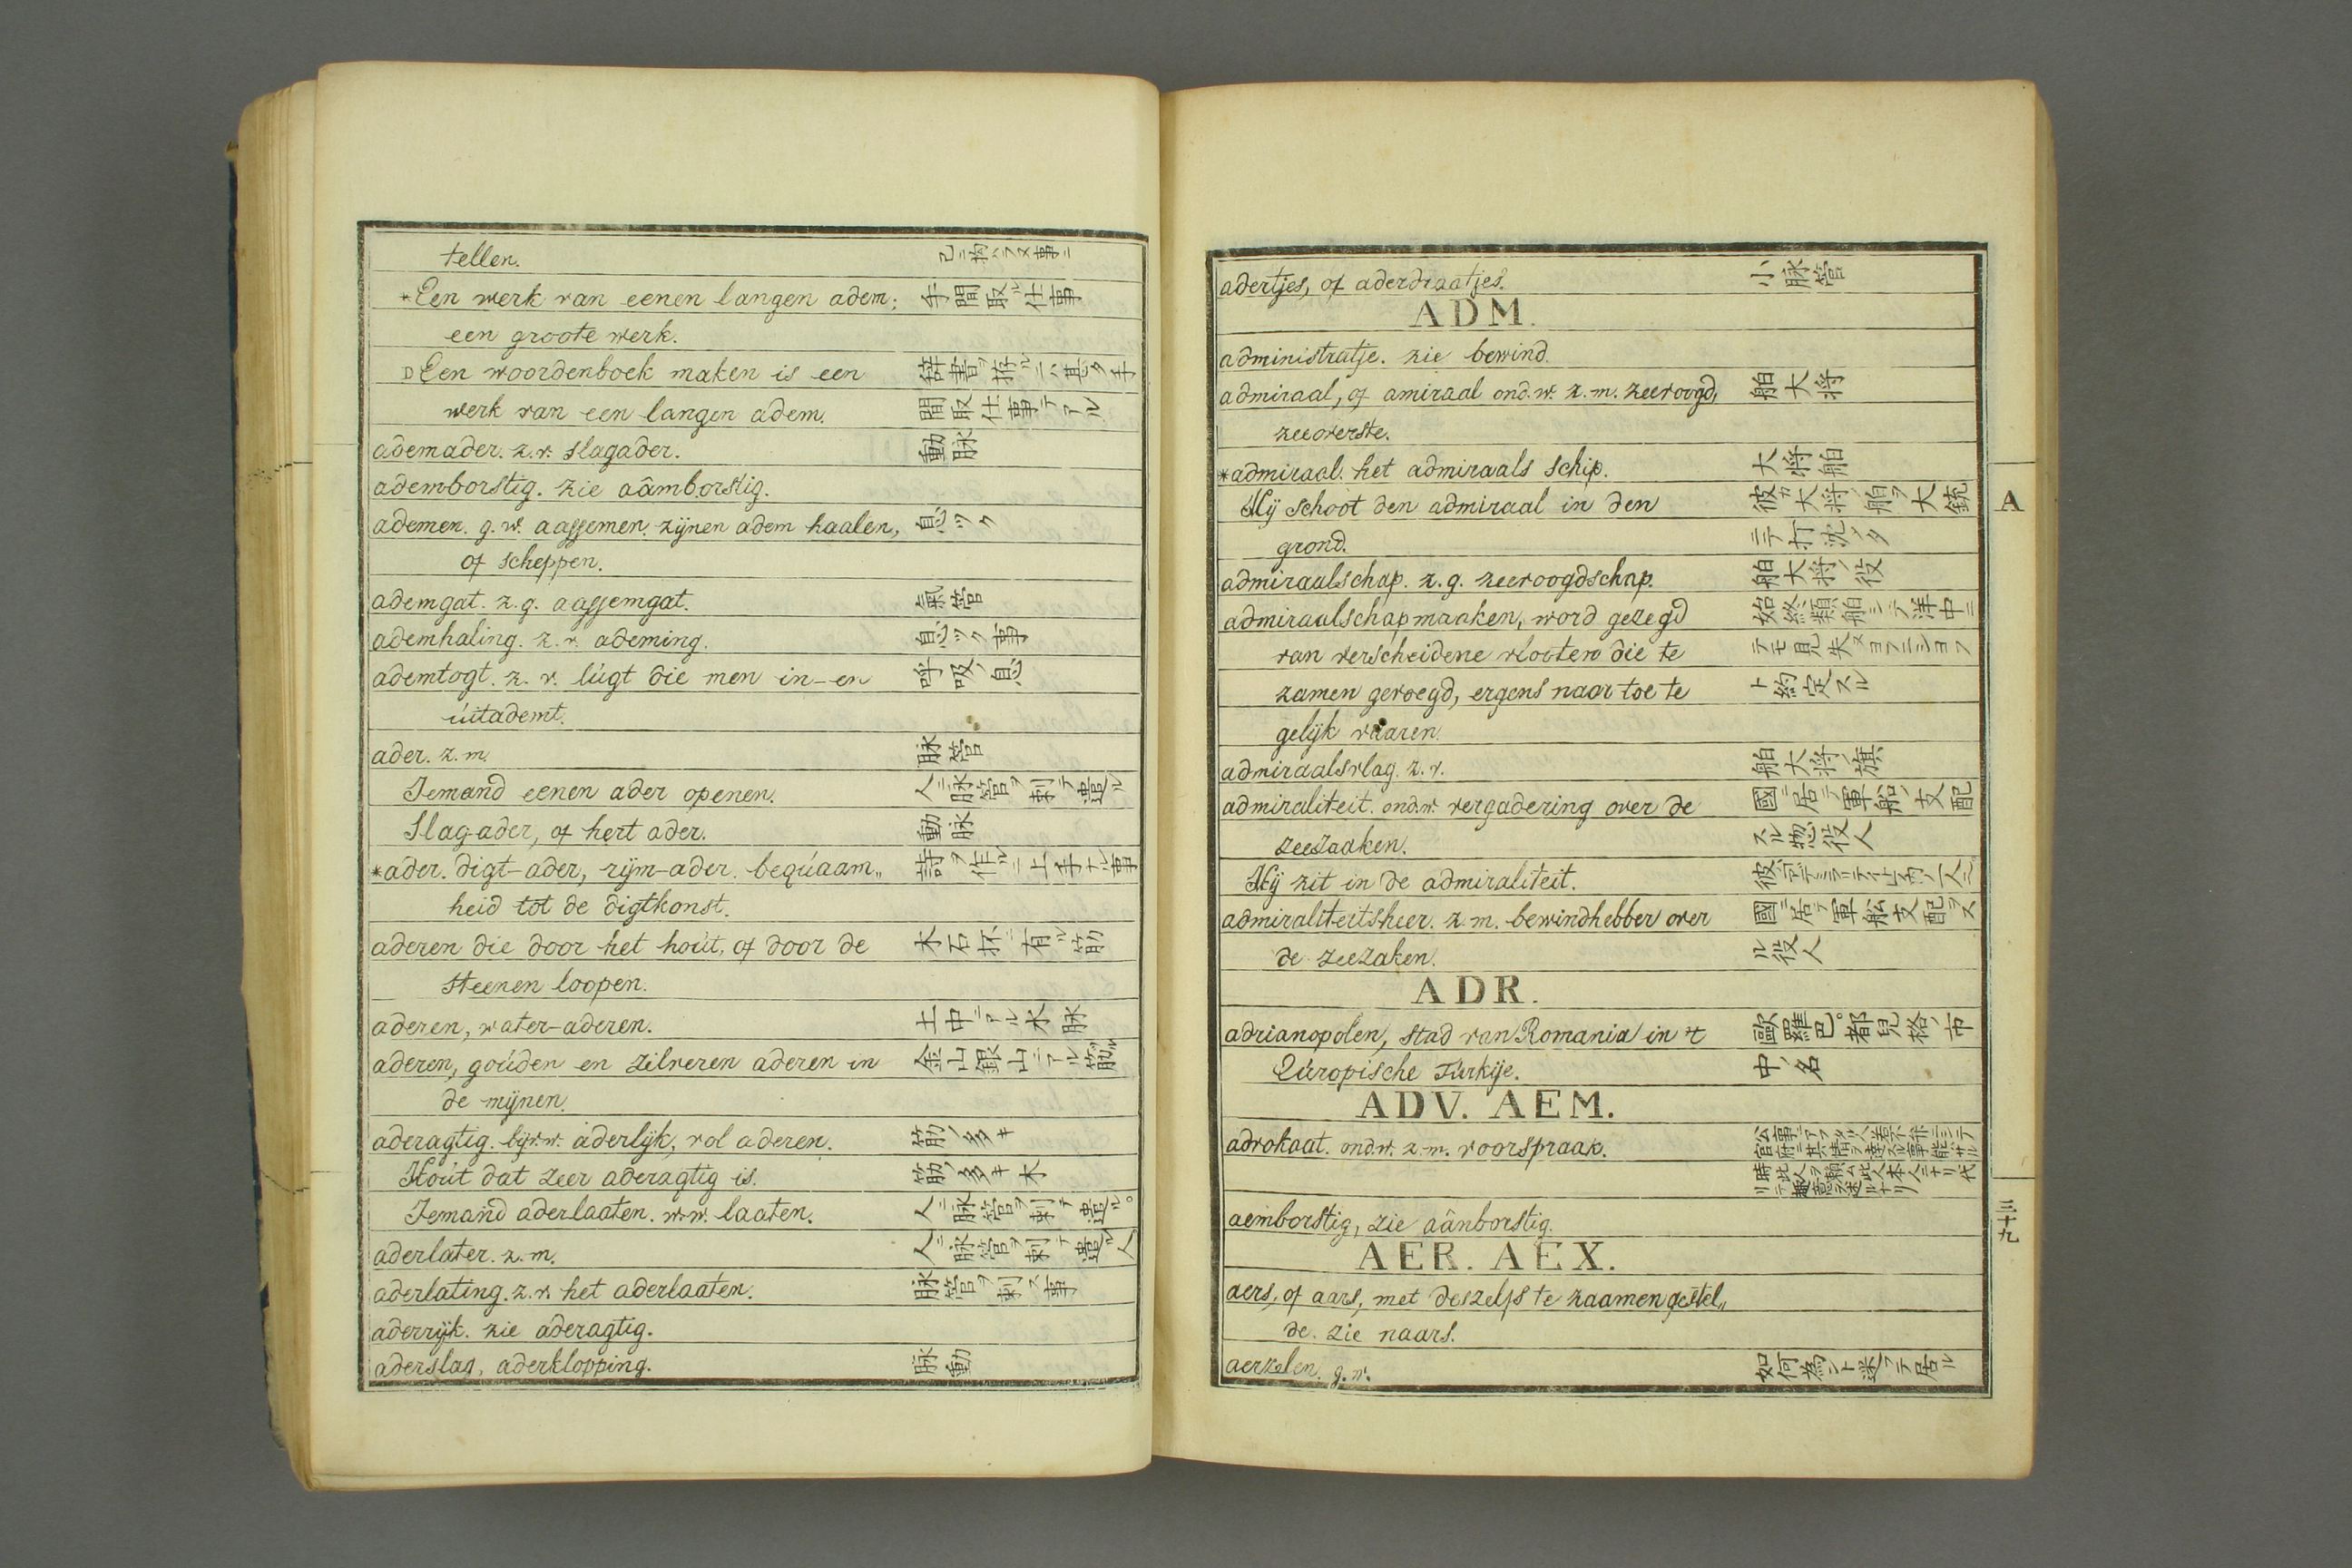 tellen. 己ニ拘ハラヌ事ニ
*Een werk van eenen langen adem; 手間取ル仕事
een groote werk.
D Een woordenboek maken is een 辞書ヲ拵ルニハ甚タ手
werk van een langen adem. 間取仕事テアル
ademader. z.v. slagader. 動脉
ademborstig. zie aâmborstig.
ademen. g.w. aassemen. zijnen adem haalen, 息ツク
of scheppen.
ademgat. z.g. aassemgat. 氣管
ademhaling. z.v. ademing. 息ツク事
ademtogt. z.v. lúgt die men in-en 呼吸ノ息
úitademt.
ader. z.m. 脉管
Iemand eenen ader openen. 人ニ脉管ヲ刺テ遣ル
Slag-ader, of hert ader. 動脉
*ader. digt-ader, rijm-ader. beqúaam„ 詩ヲ作ルニ上手ナル事
heid tot de digtkonst.
aderen die door het hoút, of door de 木石抔ニ有ル筋
steenen loopen.
aderen, water-aderen. 土中ニアル水脉
aderen, goúden en zilveren aderen in 金山銀山ニアル筋
de mijnen.
aderagtig. bijv.w. aderlijk, vol aderen. 筋ノ多キ
Hoút dat zeer aderagtig is. 筋ノ多キ木
Iemand aderlaaten. w.w. laaten. 人ニ脉管ヲ刺テ遣ル。
aderlater. z.m. 人ニ脉管ヲ刺テ遣ル人
aderlating. z.v. het aderlaaten. 脉管ヲ刺ス事
aderrijk. zie aderagtig.
aderslag, aderklopping. 脉動
adertjes, of aderdraatjes. 小脉管
ADM.
administratje. zie bewind.
admiraal, of amiraal ond.w. z.m. zeevoogd, 舶大将
zeeoverste.
*admiraal. het admiraals schip. 大将舶
Hij schoot den admiraal in den 彼カ大将ノ舶ヲ大銃
grond. ニテ打沈メタ
admiraalschap. z.g. zeevoogdschap. 舶大将ノ役
admiraalschapmaaken, word gezegd 始終類舶シテ洋中ニ
van verscheidene vlooten die te テモ見失ヌヨフニシヨフ
zamen gevoegd, ergens naar toe te ト約定スル
gelijk vaaren.
admiraalsvlag. z.v. 舶大将ノ旗
admiraliteit. ond.w. vergadering over de 國ニ居テ軍船ノ支配
zeezaaken. スル惣役人
Hij zit in de admiraliteit.
admiraliteitsheer. z.m. bewindhebber over 國ニ居テ軍舩支配ヲス
de zeezaken. ル役人
ADR.
adrianopolen, stad van Romania in 't 歐羅巴。都兒格ノ市
Eúropische Túrkije. 中ノ名
ADV. AEM.
advokaat. ond.w. z.m. voorspraak.
aemborstig, zie aânborstig.
AER. AEX.
aers, of aars, met deszelfs te zaamen gestel„
de. zie naars.
aerzelen. g.w. 如何為ント迷フテ居ル
A
三十九